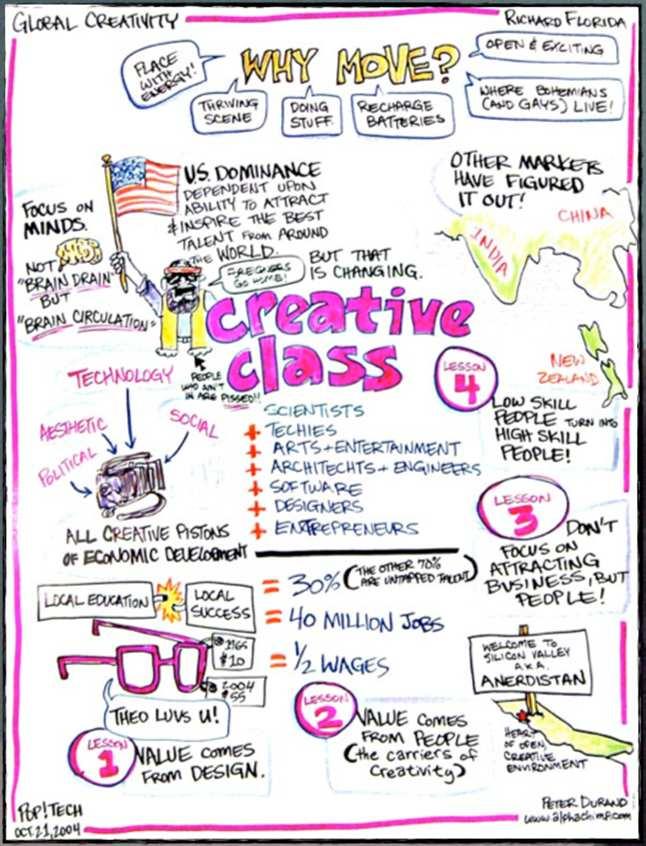 GLOBAL CREATIVITY
RICHARD FLORIDA
WHY MOVE?
PLACE
WITH
ENERGY!
THRIVING
SCENE
DOING
STUFF
RECHARGE
BATTERIES
OPEN & EXCITING
WHERE BOHEMIANS
(AND GAYS) LIVE!
FOCUS ON
MINDS.
NOT
"BRAIN DRAIN"
BUT
"BRAIN CIRCULATION"
U.S. DOMINANCE
DEPENDENT UPON
ABILITY TO ATTRACT
& INSPIRE THE BEST
TALENT FROM AROUND
THE WORLD.
FOREIGNERS
GO HOME!
BUT THAT
IS CHANGING.
PEOPLE
WHO AIN'T
IN ARE PISSED!!
OTHER MARKETS
HAVE FIGURED
IT OUT!
CHINA
INDIA
NEW
ZEALAND
creative
class
SCIENTISTS
+ TECHIES
+ ARTS + ENTERTAINMENT
+ ARCHITECHTS + ENGINEERS
+ SOFTWARE
+ DESIGNERS
+ ENTREPRENEURS
= 30% (THE OTHER 70%
ARE UNTAPPED TALENT)
= 40 MILLION JOBS
= 1/2 WAGES
TECHNOLOGY
AESTHETIC
SOCIAL
POLITICAL
ALL CREATIVE PISTONS
OF ECONOMIC DEVELOPMENT
LOCAL EDUCATION
LOCAL
SUCCESS
1965
$10
2004
THEO LUVS U!
LESSON
1
VALUE COMES
FROM DESIGN.
LESSON
2
VALUE COMES
FROM PEOPLE
(the carriers of
creativity)
LESSON
4
LOW SKILL
PEOPLE TURN INTO
HIGH SKILL
PEOPLE!
LESSON
3
DON'T
FOCUS ON
ATTRACTING
BUSINESS, BUT
PEOPLE!
WELCOME TO
SILICON VALLEY
A.K.A.
ANERDISTAN
HEART
OF OPEN,
CREATIVE
ENVIRONMENT
POP!TECH
OCT.21,2004
PETER DURAND
www.alphachimp.com